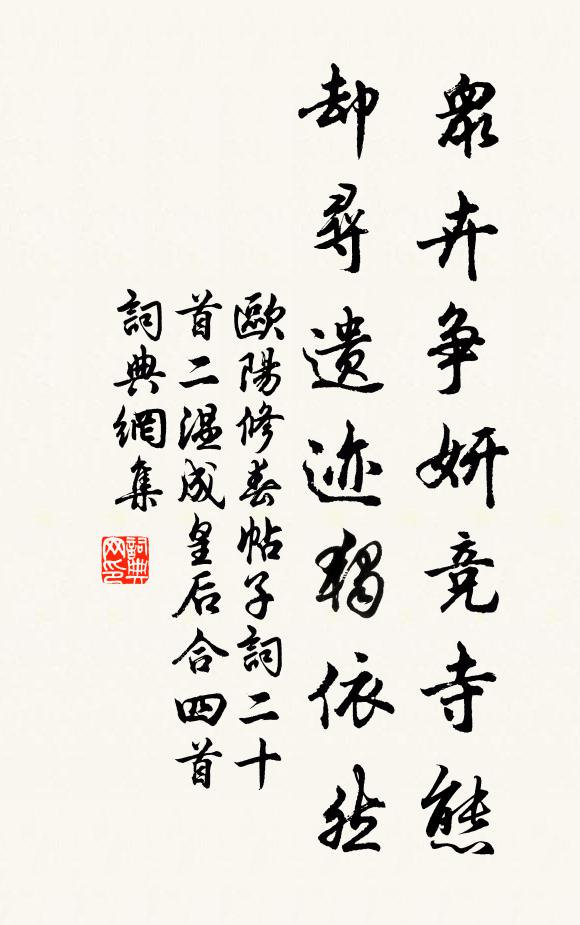 眾卉争妍竞寺態
却尋遗迹獨依然
歐陽修春帖子詞二十
首二溫成皇后合四首
詞典網集
詞典网印